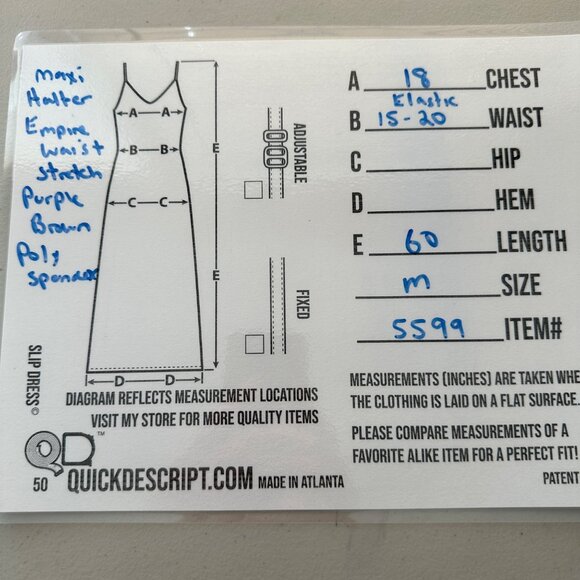 Maxi
Halter
Empire
Waist
Stretch
Purple
Brown
Poly
Spandex
A A
B B
C C
D D
E
E
ADJUSTABLE
FIXED
SLIP DRESS©
A 18 CHEST
Elastic
B 15-20 WAIST
C HIP
D HEM
E 60 LENGTH
m SIZE
5599 ITEM#
DIAGRAM REFLECTS MEASUREMENT LOCATIONS
VISIT MY STORE FOR MORE QUALITY ITEMS
QD™
50 QUICKDESCRIPT.COM MADE IN ATLANTA
MEASUREMENTS (INCHES) ARE TAKEN WHE
THE CLOTHING IS LAID ON A FLAT SURFACE.
PLEASE COMPARE MEASUREMENTS OF A
FAVORITE ALIKE ITEM FOR A PERFECT FIT!
PATENT